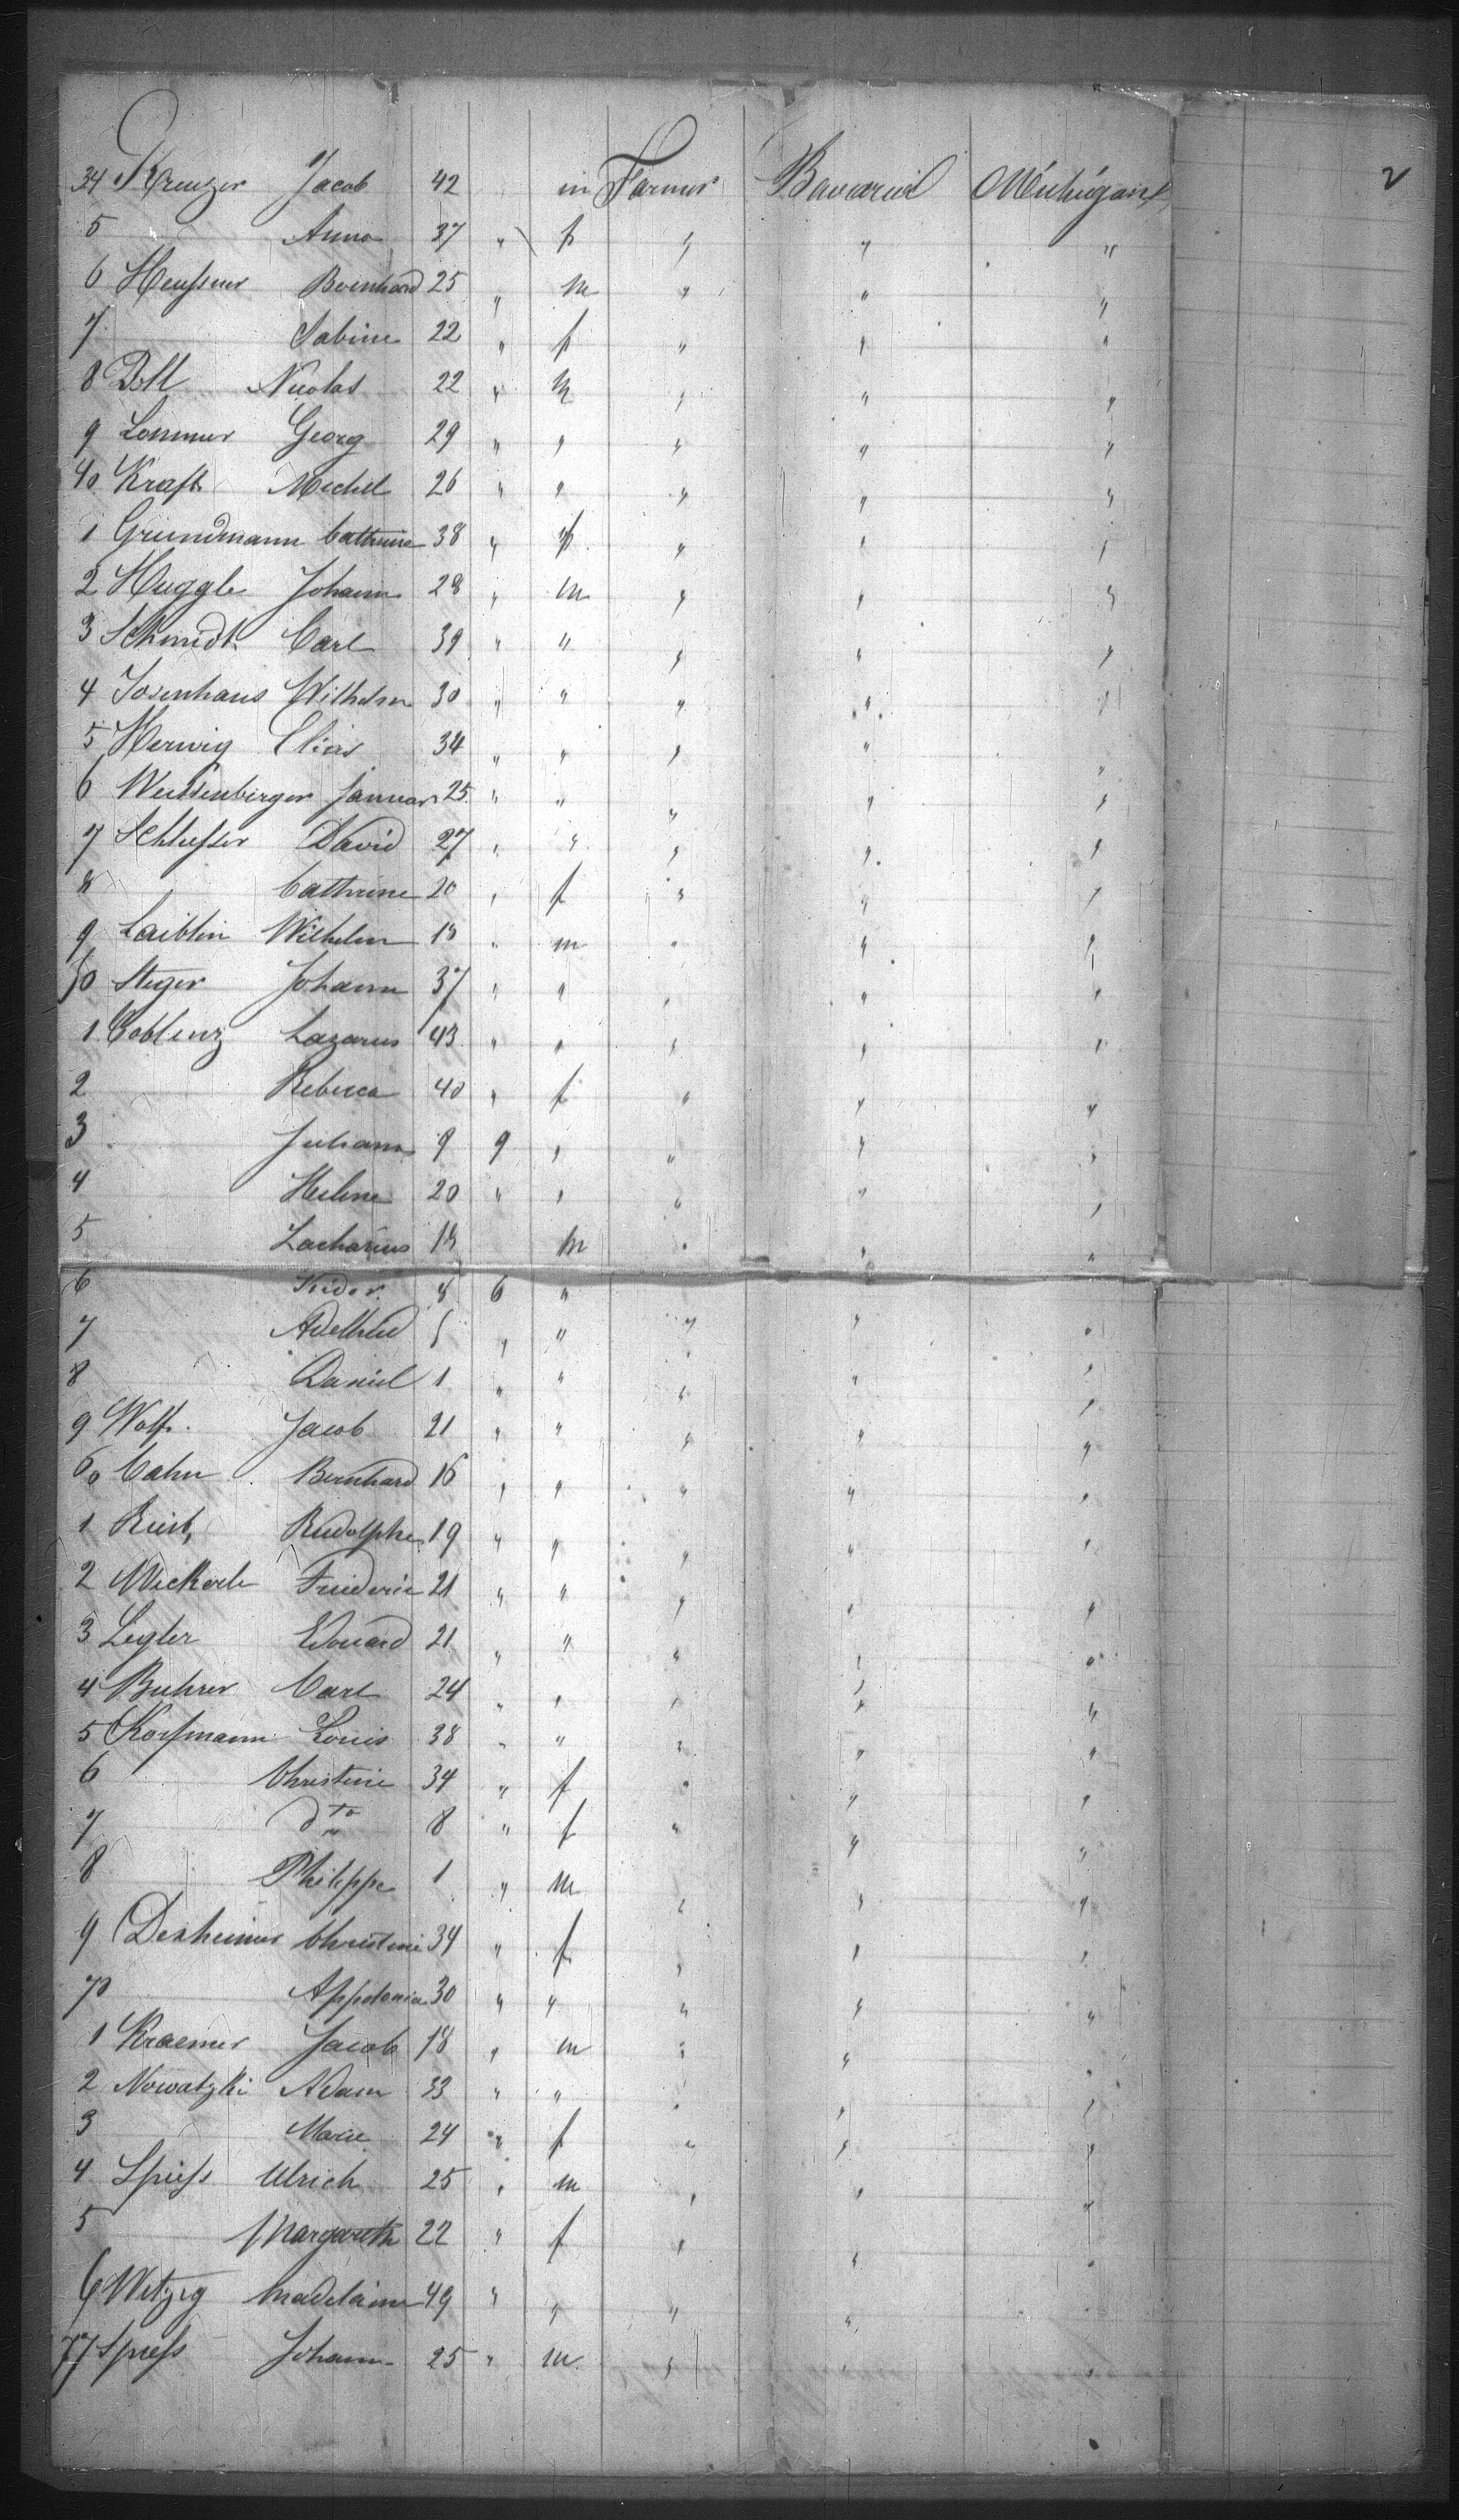 2
34 Kreuzer Jacob 42 m Farmer Bavaria Michigan
5 Anna 37 " f " " "
6 Heussner Bernhard 25 " m " " "
7 Sabine 22 " f " " "
8 Bell Nicolas 22 " m " " "
9 Lommer Georg 29 " " " " "
40 Kraft Michel 26 " " " " "
1 Grundmann Cathrine 38 " f " " "
2 Huggle Johann 28 " m " " "
3 Schmidt Carl 39 " " " " "
4 Josenhans Wilhelm 30 " " " " "
5 Herwig Elias 34 " " " " "
6 Weissenberger Januar 25 " " " " "
7 Schlesser David 27 " " " " "
8 Cathrine 20 " f " " "
9 Laiblin Wilhelm 18 " m " " "
50 Steger Johann 37 " " " " "
1 Coblenz Lazarus 43 " " " " "
2 Rebecca 40 " f " " "
3 Juliana 9 9 " " " "
4 Helene 20 " " " " "
5 Zacharius 18 m " " "
6 8 6 " " " "
7 Adelheid 5 " " " " "
8 Daniel 1 " " " " "
9 Wolf Jacob 21 " " " " "
60 Cahn Bernhard 16 " " " " "
1 Rudolphe 19 " " " " "
2 Friederic 21 " " " " "
3 Legler Edouard 21 " " " " "
4 Buhrer Carl 24 " " " " "
5 Korfmann Louis 38 " " " " "
6 Christine 34 " f " " "
7 dto 8 " f " " "
8 Philippe 1 " m " " "
9 Dexheimer Christine 34 " f " " "
70 Appolonia 30 " " " " "
1 Kraemer Jacob 18 " m " " "
2 Nowatzki Adam 33 " " " " "
3 Marie 24 " f " " "
4 Spiess Ulrich 25 " m " " "
5 Margareth 22 " f " " "
6 Witzig Madelaine 49 " " " "
77 Spiess Johann 25 " m " " "